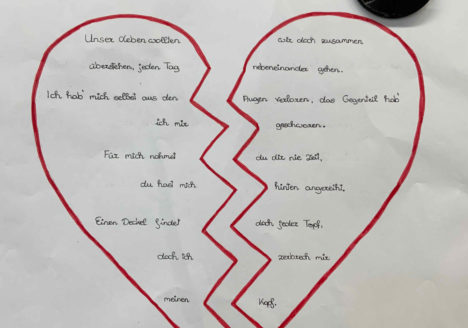 Unser Leben wollten wir doch zusammen
überstehen, jeden Tag nebeneinander gehen.
Ich hab' mich selbst aus den Augen verloren, das Gegenteil hab'
ich mir geschworen.
Für mich nahmst du dir nie Zeit,
du hast mich hinten angereiht.
Einen Deckel findet doch jeder Topf,
doch ich zerbrech mir
meinen Kopf.